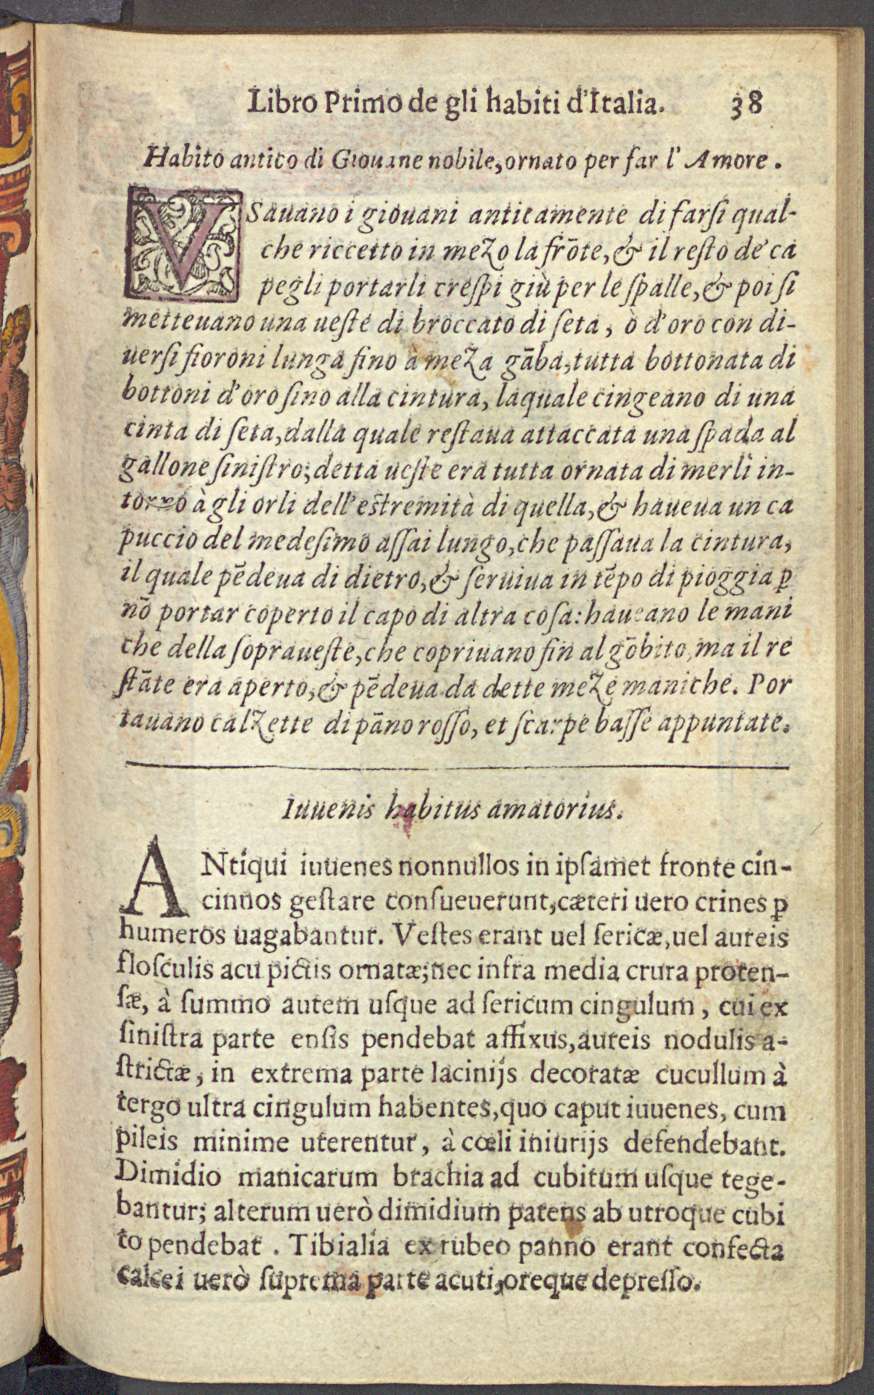 Libro Primo de gli habiti d'Italia. 38
Habito antico di Giouane nobile, ornato per far l'Amore.
VSauano i giouani anticamente di farſi qual-
che riccetto in mezo la frōte, & il reſto de' ca
pegli portarli creſpi giù per le ſpalle, & poi ſi
metteuano una ueſte di broccato di ſeta, ò d'oro con di-
uerſi fioroni lunga fino à meza gāba, tutta bottonata di
bottoni d'oro ſino alla cintura, laquale cingeano di una
cinta di ſeta, dalla quale reſtaua attaccata una ſpada al
gallone ſiniſtro; detta ueſte era tutta ornata di merli in-
torno à gli orli dell'eſtremità di quella, & haueua un ca
puccio del medeſimo aſſai lungo, che paſſaua la cintura,
il quale pēdeua di dietro, & ſeruiua in tēpo di pioggia ꝑ
nō portar coperto il capo di altra coſa: haueano le mani
che della ſopraueſte, che copriuano ſin al gōbito, ma il re
ſtāte era aperto, & pēdeua da dette meze maniche. Por
tauano calzette di pāno roſſo, et ſcarpe baſſe appuntate.
Iuuenis habitus amatorius.
ANtiqui iuuenes nonnullos in ipſamet fronte cin-
cinnos geſtare conſueuerunt, cæteri uero crines ꝑ
humeros uagabantur. Veſtes erant uel ſericæ, uel aureis
floſculis acu pictis ornatæ; nec infra media crura proten-
ſæ, à ſummo autem uſque ad ſericum cingulum, cui ex
ſiniſtra parte enſis pendebat affixus, aureis nodulis a-
ſtrictæ, in extrema parte lacinijs decoratæ cucullum à
tergo ultra cingulum habentes, quo caput iuuenes, cum
pileis minime uterentur, à cœli iniurijs defendebant.
Dimidio manicarum brachia ad cubitum uſque tege-
bantur; alterum uerò dimidium patens ab utroque cubi
to pendebat. Tibialia ex rubeo panno erant confecta
calcei uerò ſuprema parte acuti, oreque depreſſo.